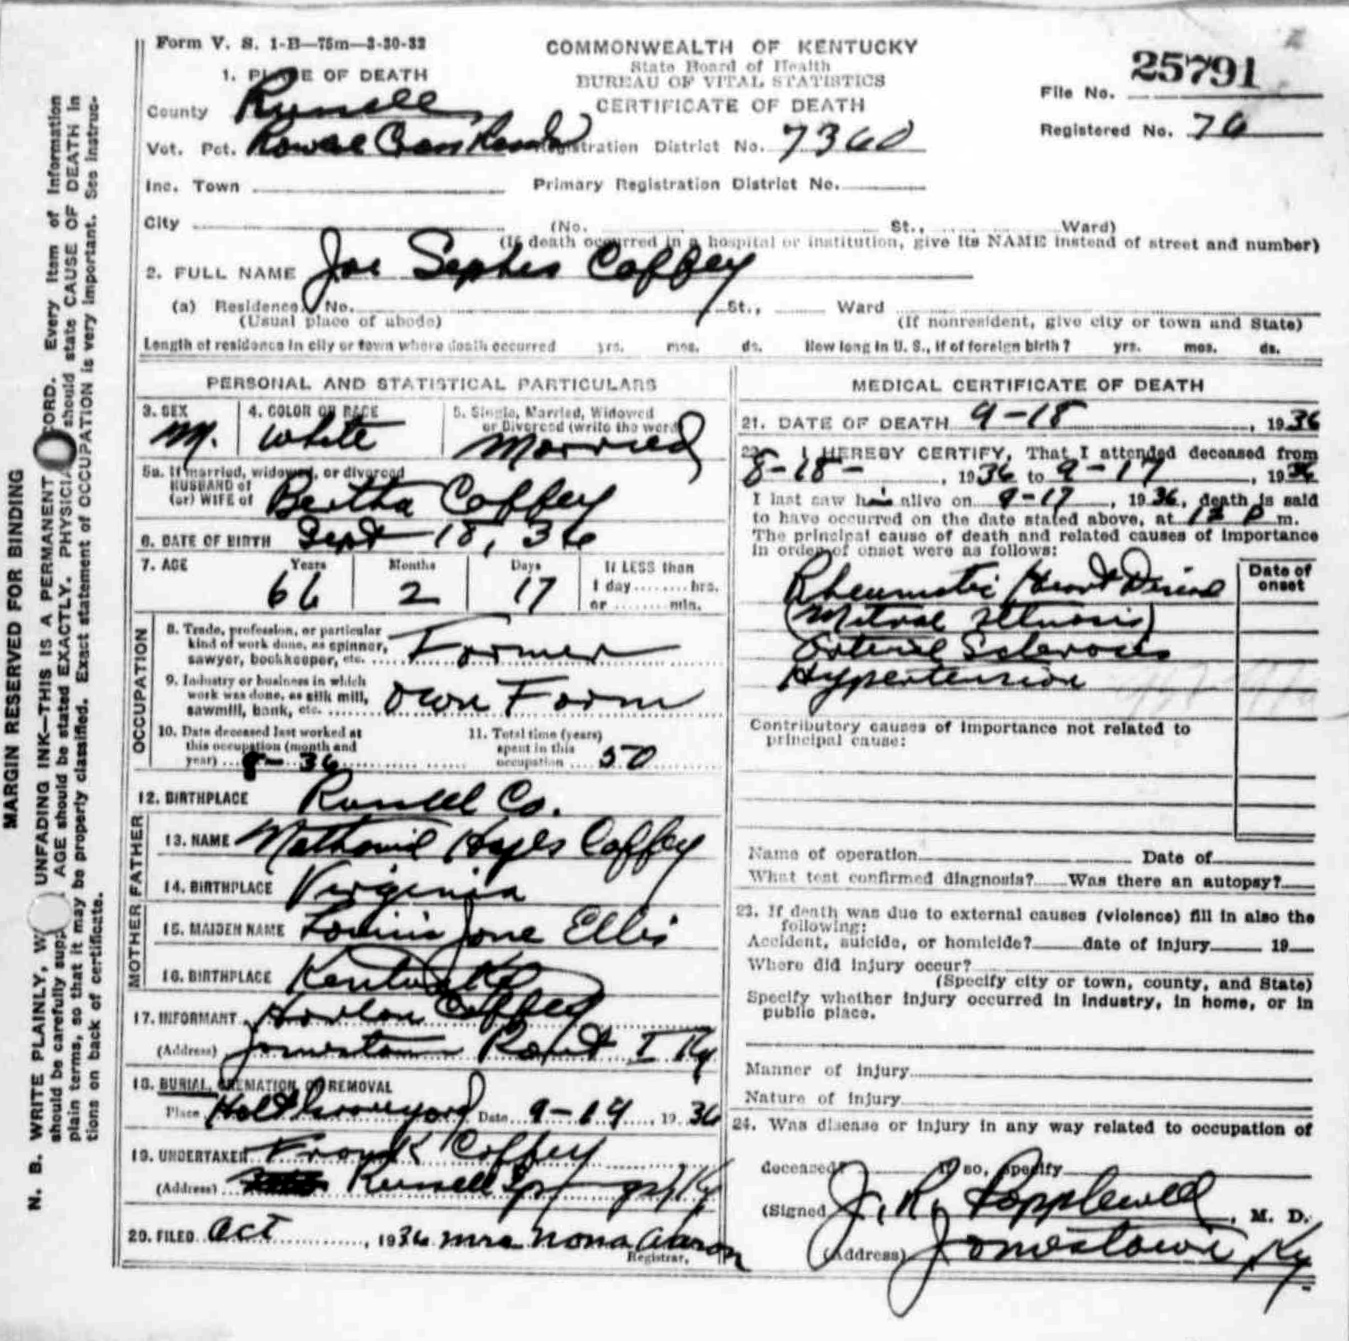 Form V. S. 1-B—75m—3-30-32
COMMONWEALTH OF KENTUCKY
State Board of Health
BUREAU OF VITAL STATISTICS
CERTIFICATE OF DEATH
25791
File No.
Registered No. 76
1. PLACE OF DEATH
County Russell
Vot. Pct. Rowe Cross Roads Registration District No. 7360
Inc. Town Primary Registration District No.
City (No. St., Ward)
(If death occurred in a hospital or institution, give its NAME instead of street and number)
2. FULL NAME Joe Sephes Coffey
(a) Residence. No. St., Ward
(Usual place of abode) (If nonresident, give city or town and State)
Length of residence in city or town where death occurred yrs. mos. ds. How long in U. S., if of foreign birth? yrs. mos. ds.
PERSONAL AND STATISTICAL PARTICULARS
3. SEX 4. COLOR OR RACE 5. Single, Married, Widowed
or Divorced (write the word)
M. White Married
5a. If married, widowed, or divorced
HUSBAND of
(or) WIFE of Bertha Coffey
6. DATE OF BIRTH Sept 18, 36
7. AGE Years Months Days If LESS than
1 day hrs.
or min.
66 2 17
OCCUPATION
8. Trade, profession, or particular
kind of work done, as spinner,
sawyer, bookkeeper, etc. Farmer
9. Industry or business in which
work was done, as silk mill,
sawmill, bank, etc. Own Farm
10. Date deceased last worked at
this occupation (month and
year) 8-36
11. Total time (years)
spent in this
occupation 50
12. BIRTHPLACE Russell Co.
FATHER
13. NAME Nathaniel Hayes Coffey
14. BIRTHPLACE Virginia
MOTHER
15. MAIDEN NAME Jane Ellis
16. BIRTHPLACE Kentucky
17. INFORMANT Harlan Coffey
(Address) Jamestown Rout I Ky
18. BURIAL, CREMATION OR REMOVAL
Place Holt Graveyard Date 9-19 1936
19. UNDERTAKER Frank Coffey
(Address) Russell Springs, Ky
20. FILED Oct, 1936 Mrs Nona Aaron
Registrar.
MEDICAL CERTIFICATE OF DEATH
21. DATE OF DEATH 9-18, 1936
22. I HEREBY CERTIFY, That I attended deceased from
8-18-, 1936 to 9-17, 1936
I last saw him alive on 9-17, 1936, death is said
to have occurred on the date stated above, at 12 P m.
The principal cause of death and related causes of importance
in order of onset were as follows:
Date of
onset
Rheumatic Heart Disease
(Mitral Stenosis)
Arterial Sclerosis
Hypertension
Contributory causes of importance not related to
principal cause:
Name of operation Date of
What test confirmed diagnosis? Was there an autopsy?
23. If death was due to external causes (violence) fill in also the
following:
Accident, suicide, or homicide? date of injury 19
Where did injury occur?
(Specify city or town, county, and State)
Specify whether injury occurred in industry, in home, or in
public place.
Manner of injury
Nature of injury
24. Was disease or injury in any way related to occupation of
deceased? If so, specify
(Signed J. R. Popplewell, M. D.
(Address) Jamestown Ky
MARGIN RESERVED FOR BINDING
N. B. WRITE PLAINLY, UNFADING INK—THIS IS A PERMANENT Every item of information
should be carefully AGE should be stated EXACTLY. should state CAUSE OF DEATH in
plain terms, so that it may be properly classified. Exact statement of OCCUPATION is very important. See instruc-
tions on back of certificate.